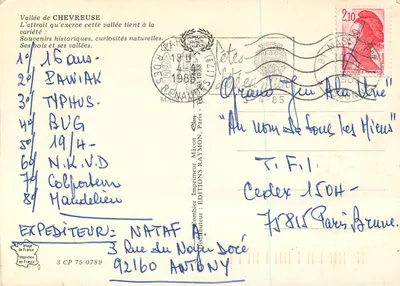 Vallée de CHEVREUSE
L'attrait qu'exerce cette vallée tient à la
variété
Souvenirs historiques, curiosités naturelles.
Ses bois et ses vallées.
1º/ 16 ans
2º/ PAWIAK
3º/ TYPHUS
4º/ BUG
5º/ 19/4
6º/ N.K.V.D
7º/ Colporteur
8º/ Mandelieu
EXPEDITEUR: NATAF A.
3 Rue du Noyer Doré
92160 ANTONY
3 CP 75 0789
EDITIONS RAYMON, Paris
2,10
"Grand Jeu
"Au nom de tous les Miens"
T.F.1
Cedex 150H
75815 Paris Brune.